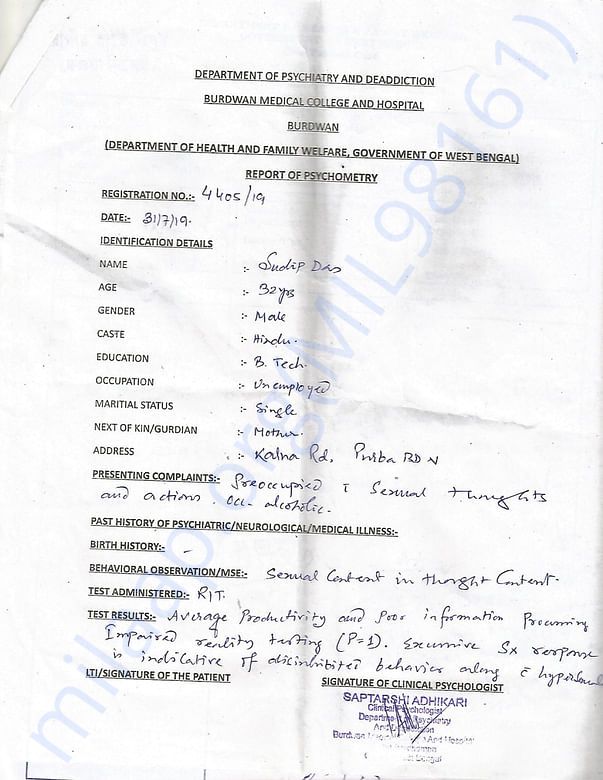 DEPARTMENT OF PSYCHIATRY AND DEADDICTION
BURDWAN MEDICAL COLLEGE AND HOSPITAL
BURDWAN
(DEPARTMENT OF HEALTH AND FAMILY WELFARE, GOVERNMENT OF WEST BENGAL)
REPORT OF PSYCHOMETRY
REGISTRATION NO.:- 4405/19
DATE:- 31/7/19.
IDENTIFICATION DETAILS
NAME :- Sudip Das
AGE :- 32yrs
GENDER :- Male
CASTE :- Hindu.
EDUCATION :- B. Tech.
OCCUPATION :- Unemployed
MARITIAL STATUS :- Single
NEXT OF KIN/GURDIAN :- Mother.
ADDRESS :- Kalna Rd, Purba BDN
PRESENTING COMPLAINTS:- Preoccupied c̄ Sexual thoughts
and actions. occ. alcoholic.
PAST HISTORY OF PSYCHIATRIC/NEUROLOGICAL/MEDICAL ILLNESS:-
BIRTH HISTORY:- -
BEHAVIORAL OBSERVATION/MSE:- Sexual Content in thought Content.
TEST ADMINISTERED:- RIT.
TEST RESULTS:- Average Productivity and Poor information Processing
Impaired reality testing (P=1). Excessive Sx response
is indicative of disinhibited behavior along c̄
LTI/SIGNATURE OF THE PATIENT
SIGNATURE OF CLINICAL PSYCHOLOGIST
SAPTARSHI ADHIKARI
Clinical Psychologist
Department of Psychiatry
And
Burdwan And Hospital